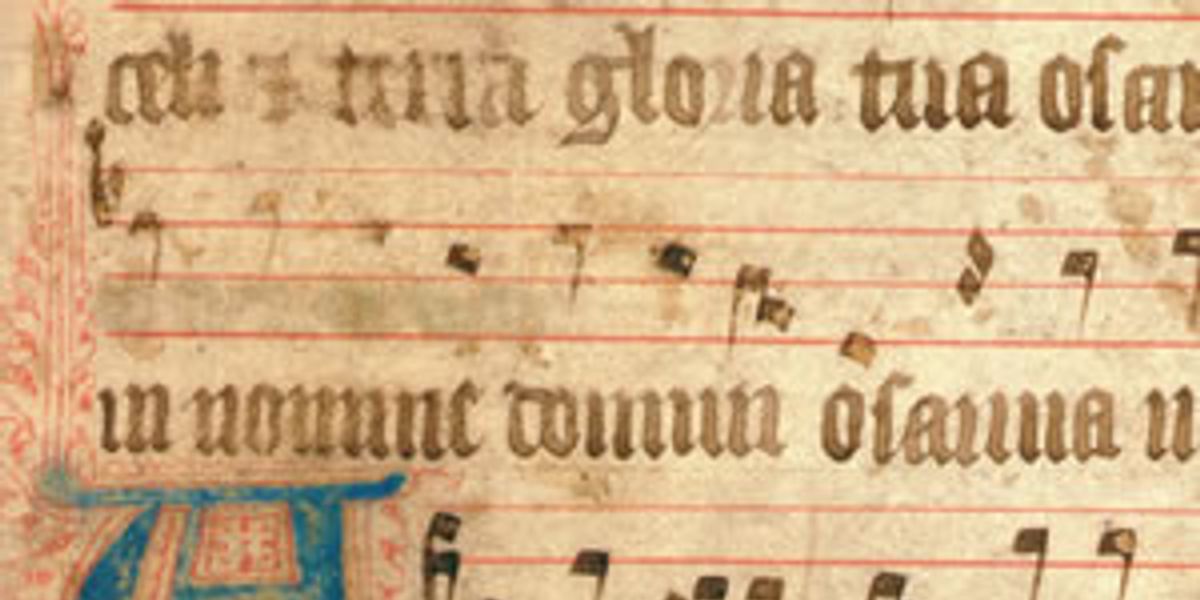 celi ⁊ terra gloria tua osan
in nomine domini osanna in